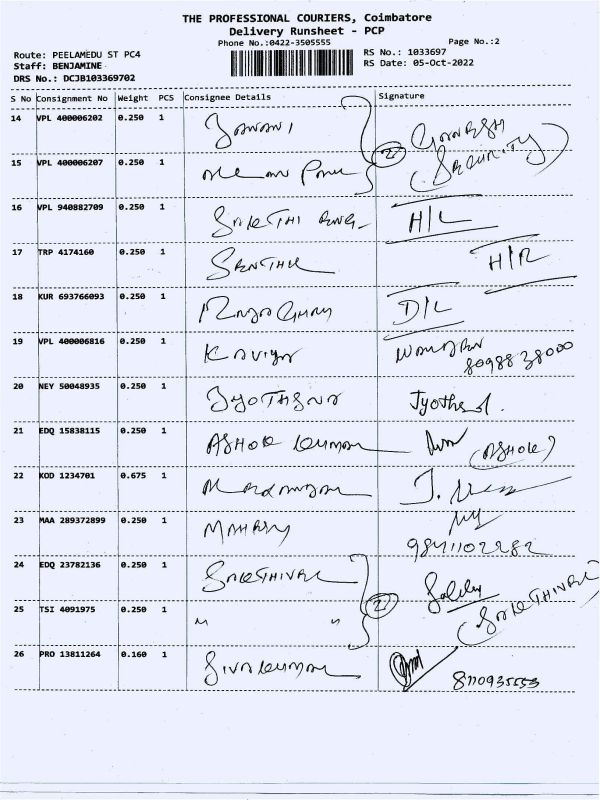 THE PROFESSIONAL COURIERS, Coimbatore
Delivery Runsheet - PCP
Phone No.:0422-3505555
Page No.:2
Route: PEELAMEDU ST PC4
RS No.: 1033697
Staff: BENJAMINE
RS Date: 05-Oct-2022
DRS No.: DCJB103369702
S No Consignment No Weight PCS Consignee Details Signature
14 VPL 400006202 0.250 1 GANESH
15 VPL 400006207 0.250 1 2 (SECURITY)
16 VPL 940882709 0.250 1 SAKTHI H/L
17 TRP 4174160 0.250 1 SENTHIL H/R
18 KUR 693766093 0.250 1 D/L
19 VPL 400006816 0.250 1 KAVIYA
8098838000
20 NEY 50048935 0.250 1 JYOTHSNA
21 EDQ 15838115 0.250 1 ASHOK KUMAR (ASHOK)
22 KOD 1234701 0.675 1
23 MAA 289372899 0.250 1
9841102282
24 EDQ 23782136 0.250 1 SAKTHIVEL
25 TSI 4091975 0.250 1 " " 2 (SAKTHIVEL)
26 PRO 13811264 0.160 1 SIVAKUMAR
8110935553